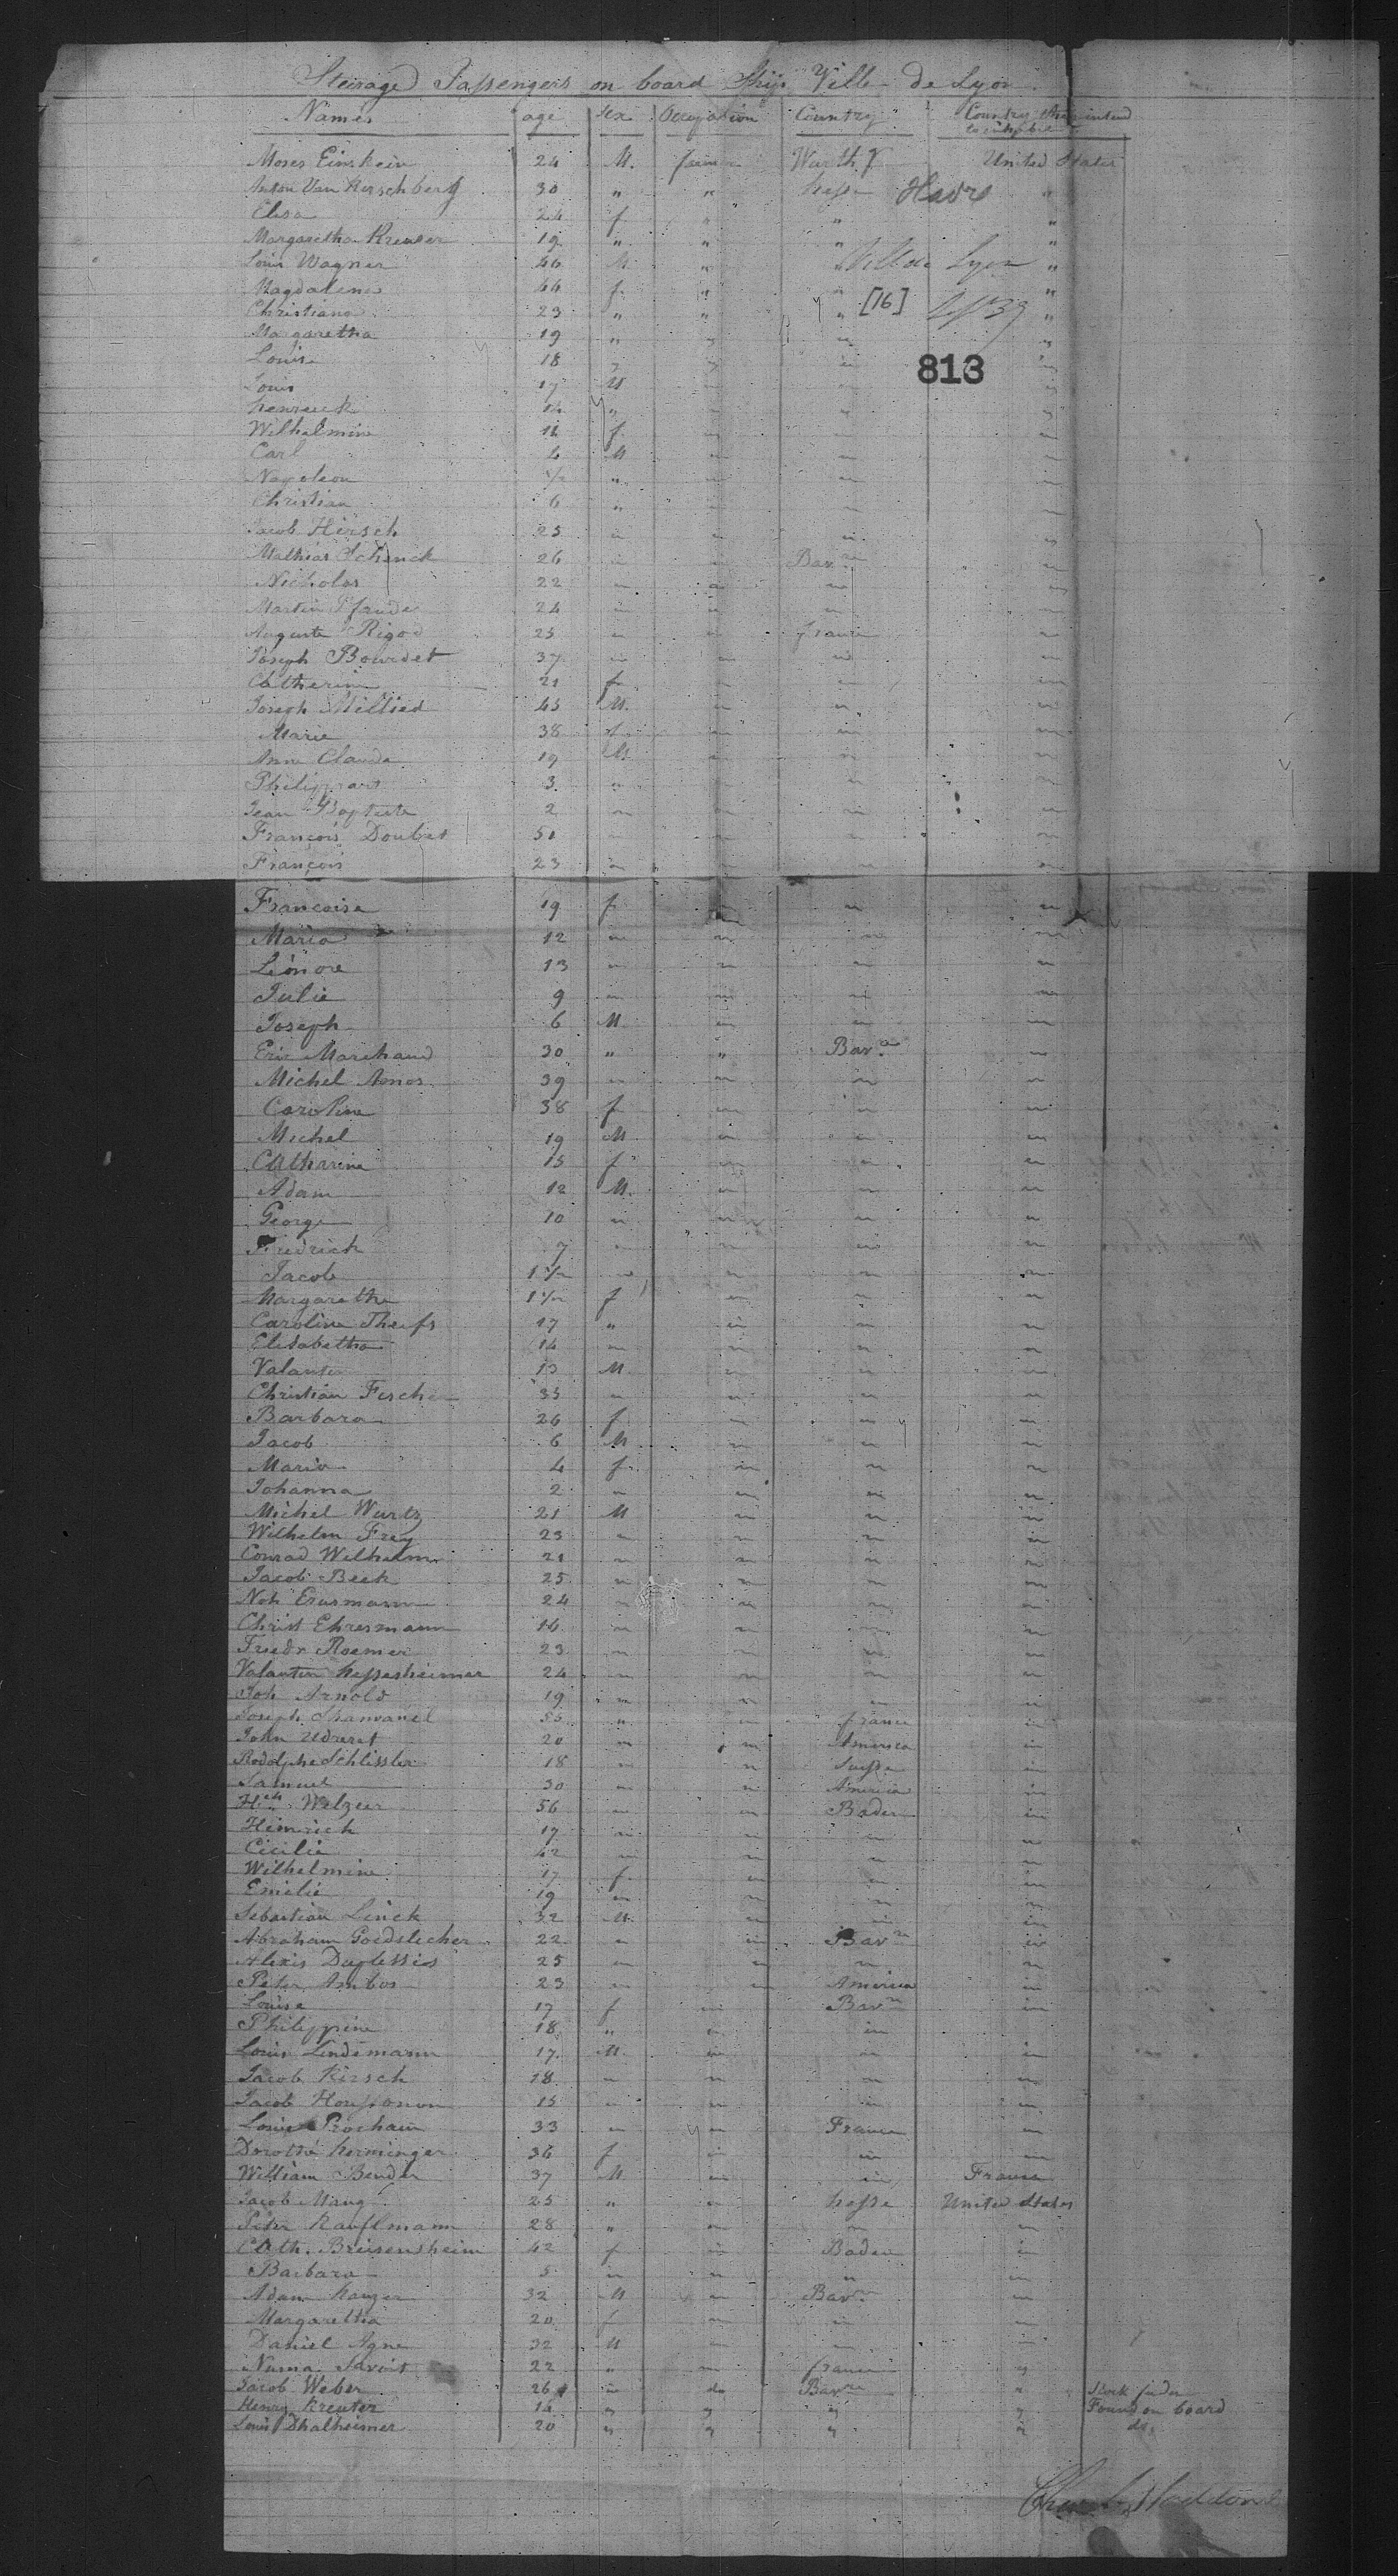 Steerage Passengers on board Ship Ville de Lyon
Names age Sex Occupation Country Country they intend to inhabit
Moses Einstein 24 M. Wurthg United States
Anton Van Kirschberg 30 " " hesse Havre "
Elisa 24 f " " "
Margaretha Kreuser 19 " " " "
Louis Wagner 46 M " " Ville de Lyon "
Magdalena 44 f. " " "
Christiana 23 " " " [16] "
Margaretha 19 " " " "
Louis 18 " " " "
813
Louis 17 M " " "
henreick 14 " " " "
Wilhelmine 11 f. " " "
Carl 4 M " " "
Napoleon 1/2 " " " "
Christian 6 " " " "
Jacob Hirsch 25 " " " "
Mathias Schenck 26 " " Bavre "
Nicholas 22 " " " "
Martin Pfande 24 " " " "
Auguste Rigod 25 " " france "
Joseph Bourdet 37 " " " "
Catherine 21 f " " "
Joseph Millied 45 M. " " "
Marie 38 f " " "
Ann Claude 19 M. " " "
Philippart 3 " " " "
Jean Baptiste 2 " " " "
François Doubet 51 " " " "
François 23 " " " "
Francoise 19 f " " "
Maria 12 " " " "
Léonore 13 " " " "
Julie 9 " " " "
Joseph 6 M " " "
Eric Marchand 30 " " Bavre "
Michel Amos 39 " " " "
Caroline 38 f " " "
Michel 19 M " " "
Catharine 15 f " " "
Adam 12 M. " " "
George 10 " " " "
Fredrick 7 " " " "
Jacob 1 1/2 " " " "
Margaretha 1 1/2 f " " "
Caroline Theifs 17 " " " "
Elisabetha 14 " " " "
Valantin 13 M " " "
Christian Fische 35 " " " "
Barbara 26 f " " "
Jacob 6 M " " "
Maria 4 f " " "
Johanna 2 " " " "
Michel Wurtz 21 M " " "
Wilhelm Frey 23 " " " "
Conrad Wilhelm 21 " " " "
Jacob Beck 25 " " " "
Noh Erasmann 24 " " " "
Christ Ehresmann 16 " " " "
Friedr Roemer 23 " " " "
Valantin hessesheimer 24 " " " "
Joh Arnold 19 " " " "
Joseph Shanvanel 55 " " france "
John 20 " " America "
Rodolphe Schlissler 18 " " Suisse "
Samuel 30 " " America "
Hch Welzer 56 " " Baden "
Heinrich 17 " " " "
Cicilie 42 " " " "
Wilhelmine 17 f " " "
Emilie 19 " " " "
Sebastian Linck 32 M " " "
Abraham Goedslicher 22 " " Bavre "
Alexis Duplessies 25 " " " "
Peter Ambos 23 " " America "
Louise 17 f " Bavre "
Philippine 18 " " "
Louis Lindemann 17. M " " "
Jacob Kirsch 18 " " " "
Jacob 15 " " " "
Louis Prochain 33 " " France "
Dorothé herminger 36 f " " "
William Bender 37 M " " France
Jacob Mang 25 " " hesse United States
Peter Kauflmann 28 " " " "
Cath. Breisensheim 42 f " Baden "
Barbara 5 " " " "
Adam Kauzer 32 M " Bavre "
Margaretha 20 f " " "
Daniel Agne 32 M " " "
Numa Savoit 22 " " france "
Jacob Weber 26 " do Bavre "
Henry Kreuter 16 " " " " Found on board
Louis Dhalheimer 20 " " " " do.
Chas Stoddard